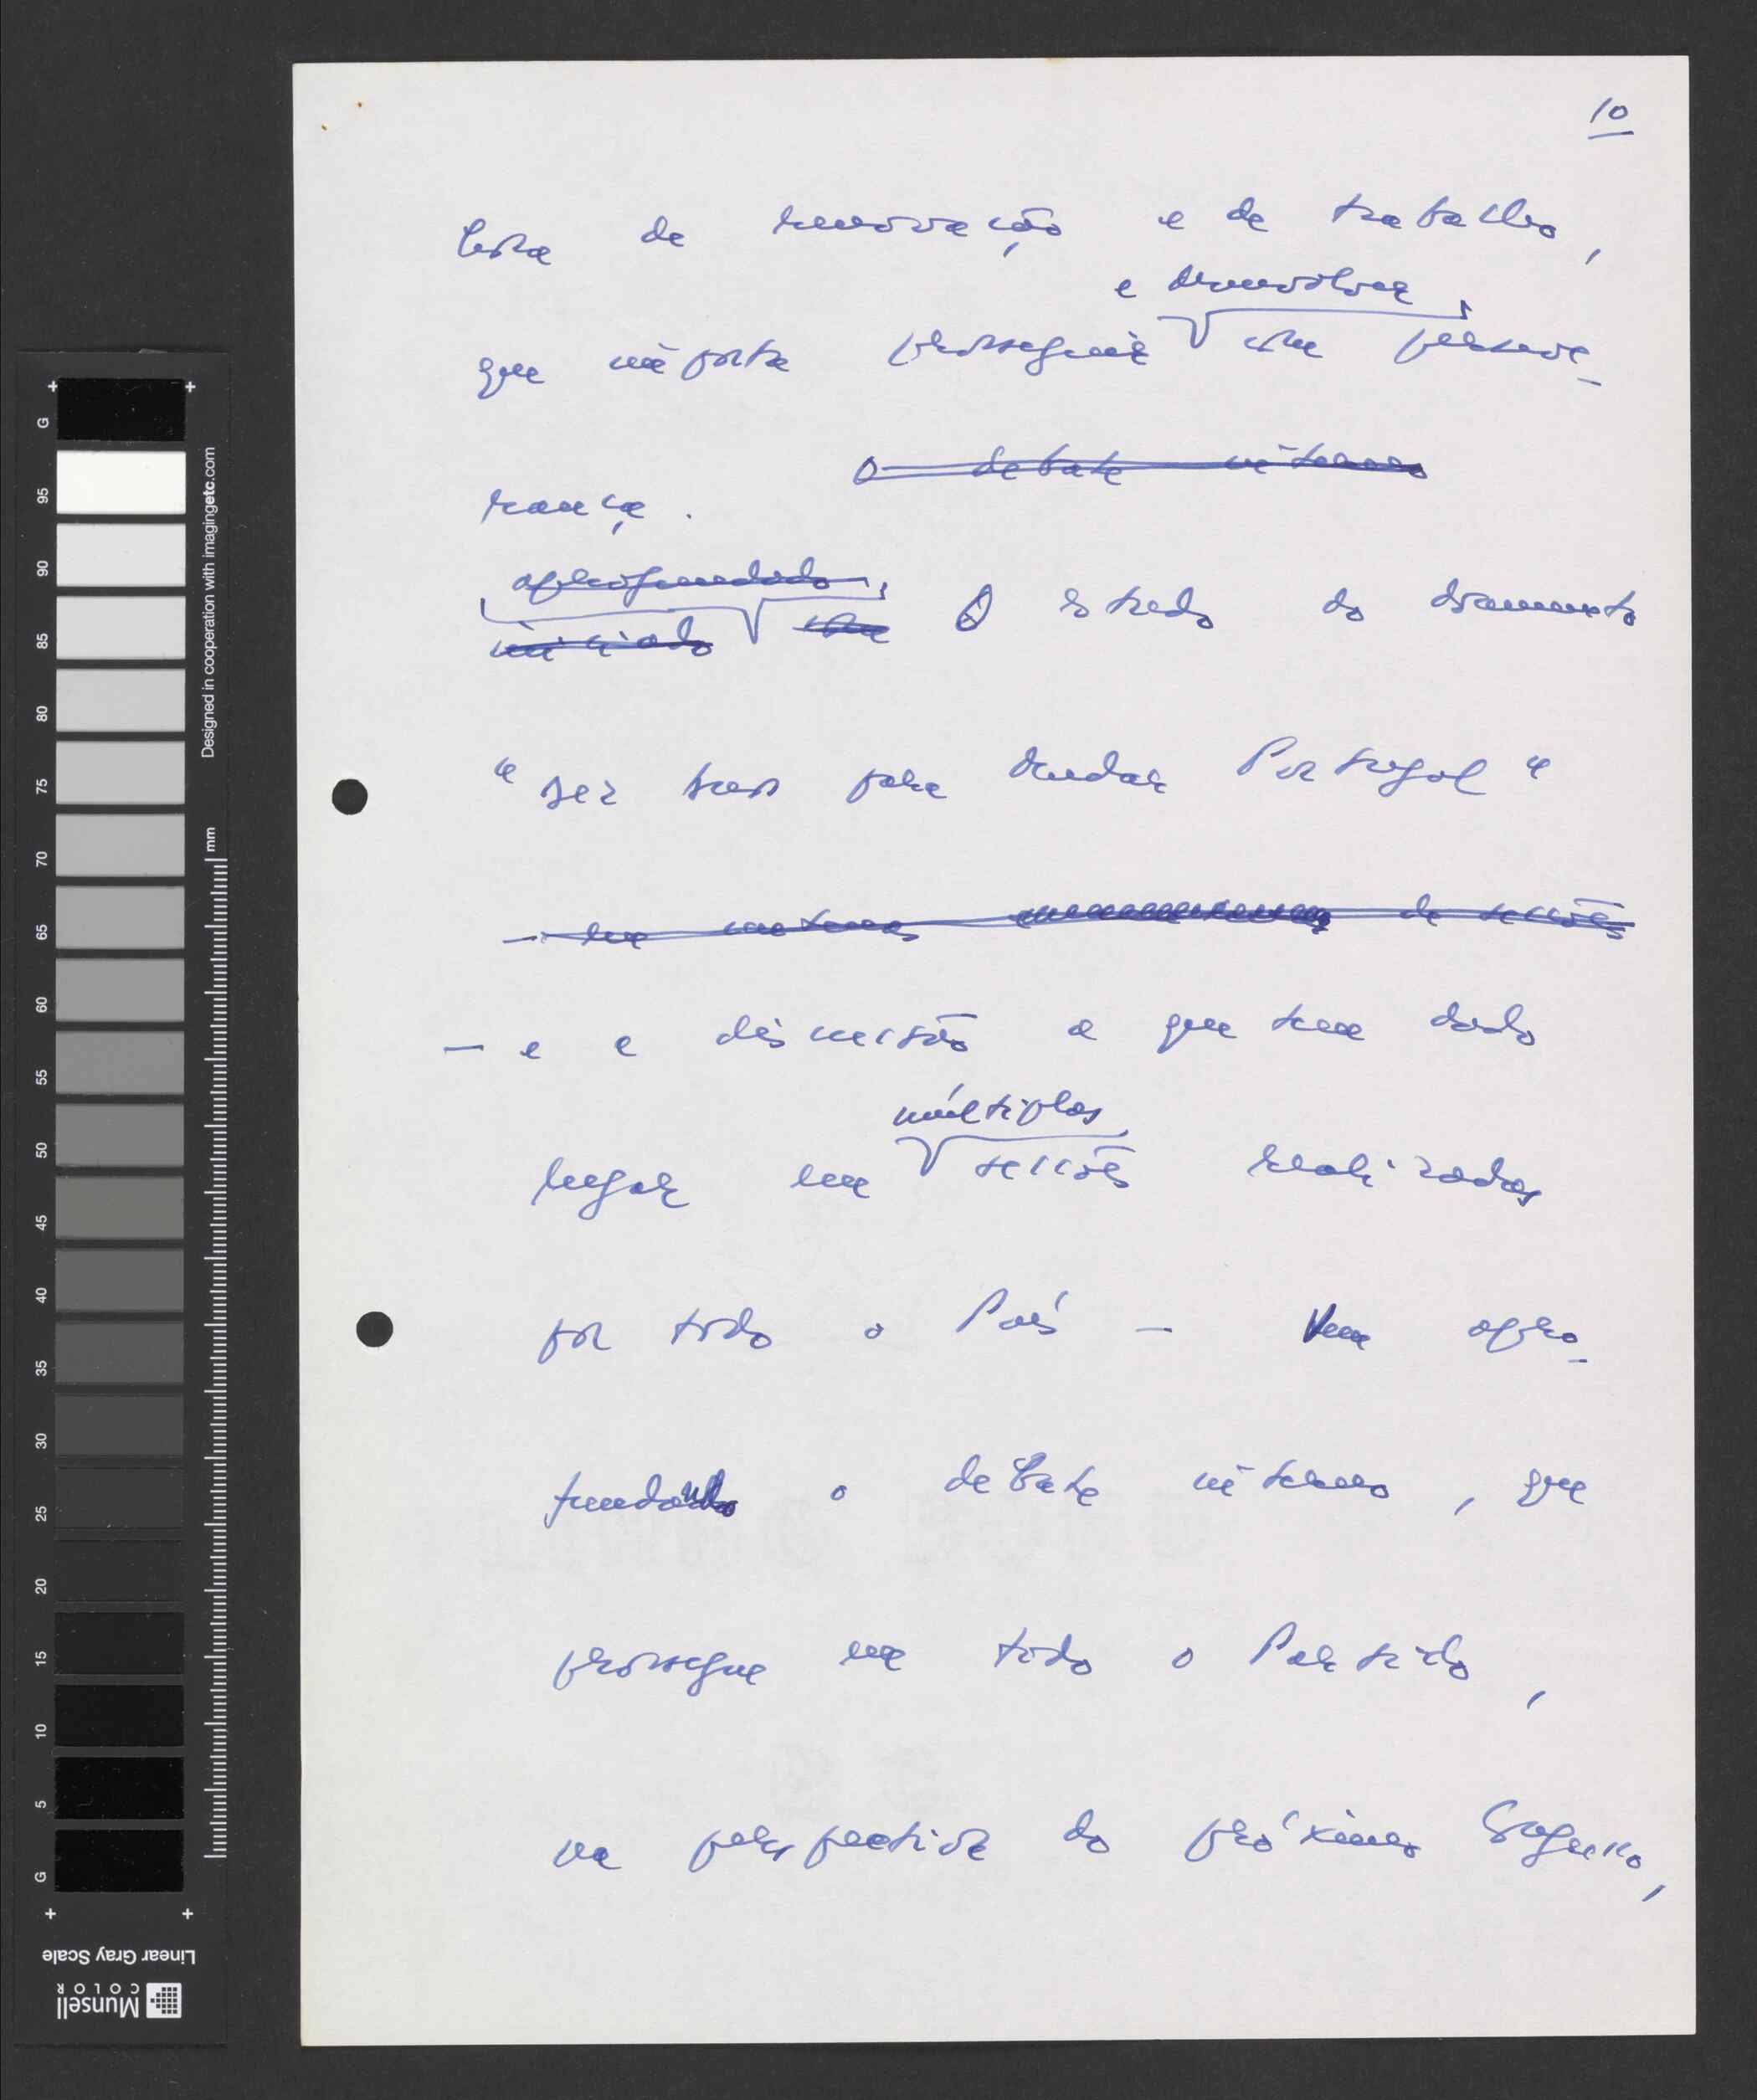 10
esta de renovação e de trabalho,
e desenvolver
que importa prosseguir com perseve-
o debate interno
rança.
aprofundado
iniciado com O estudo do documento
"Dez teses para mudar Portugal"
- em de sessões
- e a discussão a que tem dado
múltiplas
lugar em sessões realizadas
por todo o País - vem apro-
fundando o debate interno, que
prossegue em todo o Partido,
na perspectiva do próximo Congresso,
G 95 90 85 80 75 70 65 60 55 50 45 40 35 30 25 20 15 10 5 G
Designed in cooperation with imagingetc.com
mm
Linear Gray Scale
Munsell
COLOR